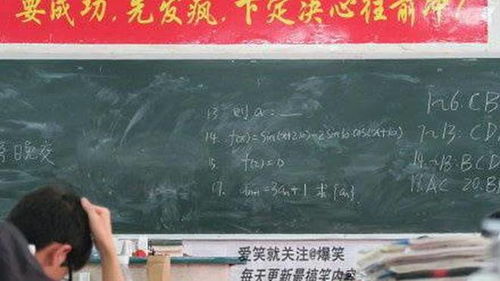 要成功,先发疯,下定决心往前冲!
13. 则a=
14. f(x)=sin(x+2φ)-2sinφcos(x+φ)
15. f(2)=0
17. =3an+1 求{an}
今日晚交
1~6. CB
7~13: CD
14~18: BCD
19. AC 20. B
爱笑就关注@爆笑
每天更新最搞笑内容